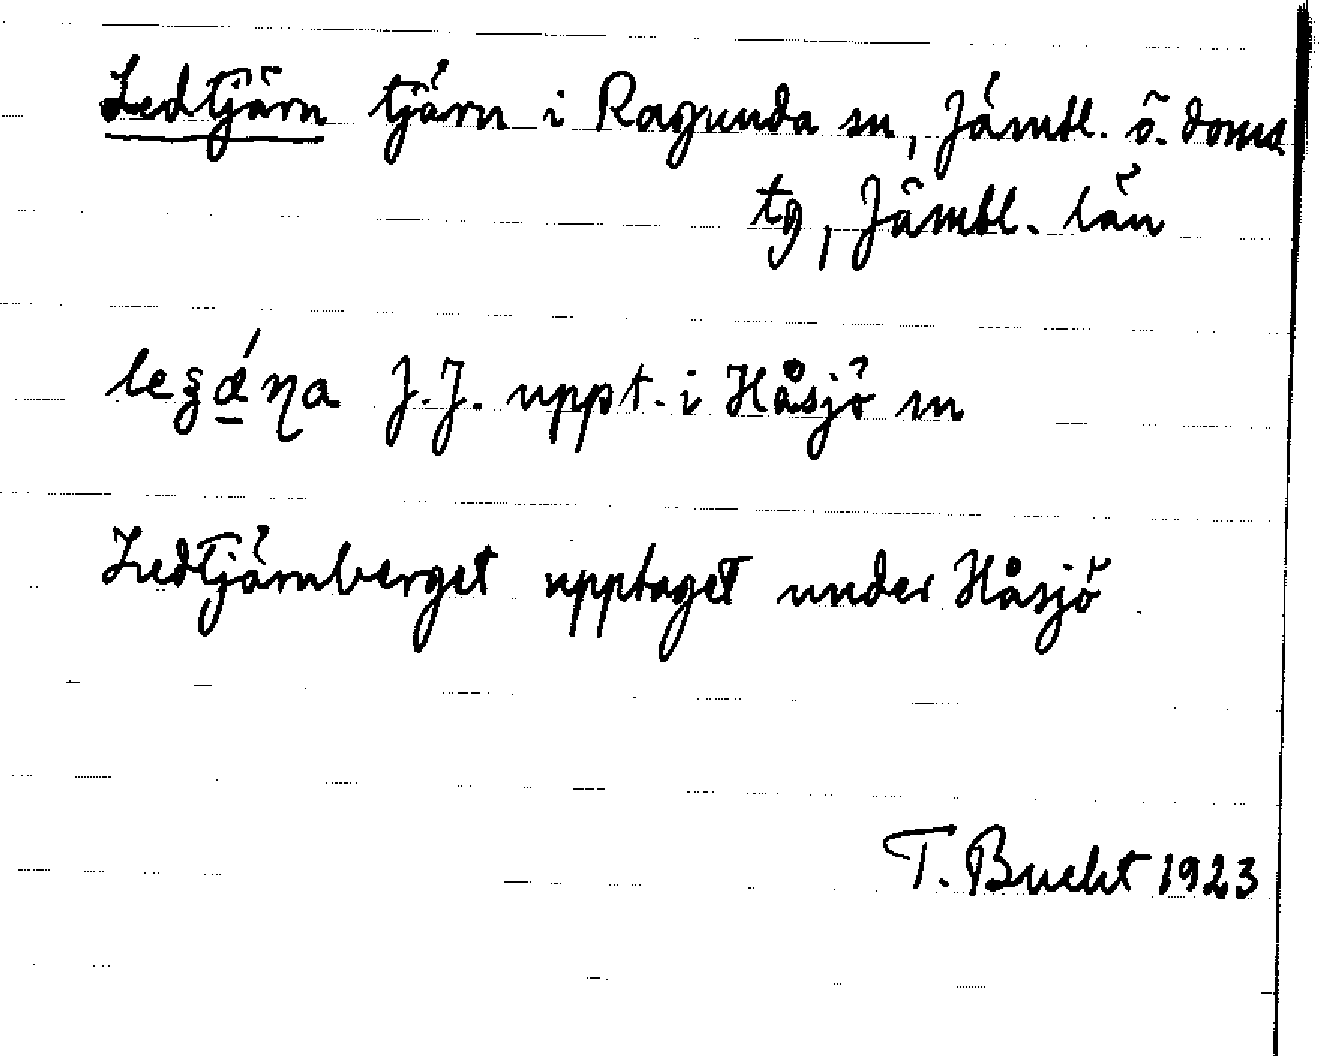 Ledtjärn tjärn i Ragunda sn, Jämtl. ö. doms.
tg, Jämtl. län
J.J. uppt. i Håsjö sn
Ledtjärnberget upptaget under Håsjö
T. Bucht 1923